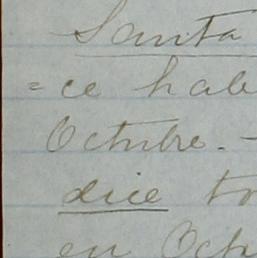 Santa
=ce hab
Octubre. -
dice to
en Octu